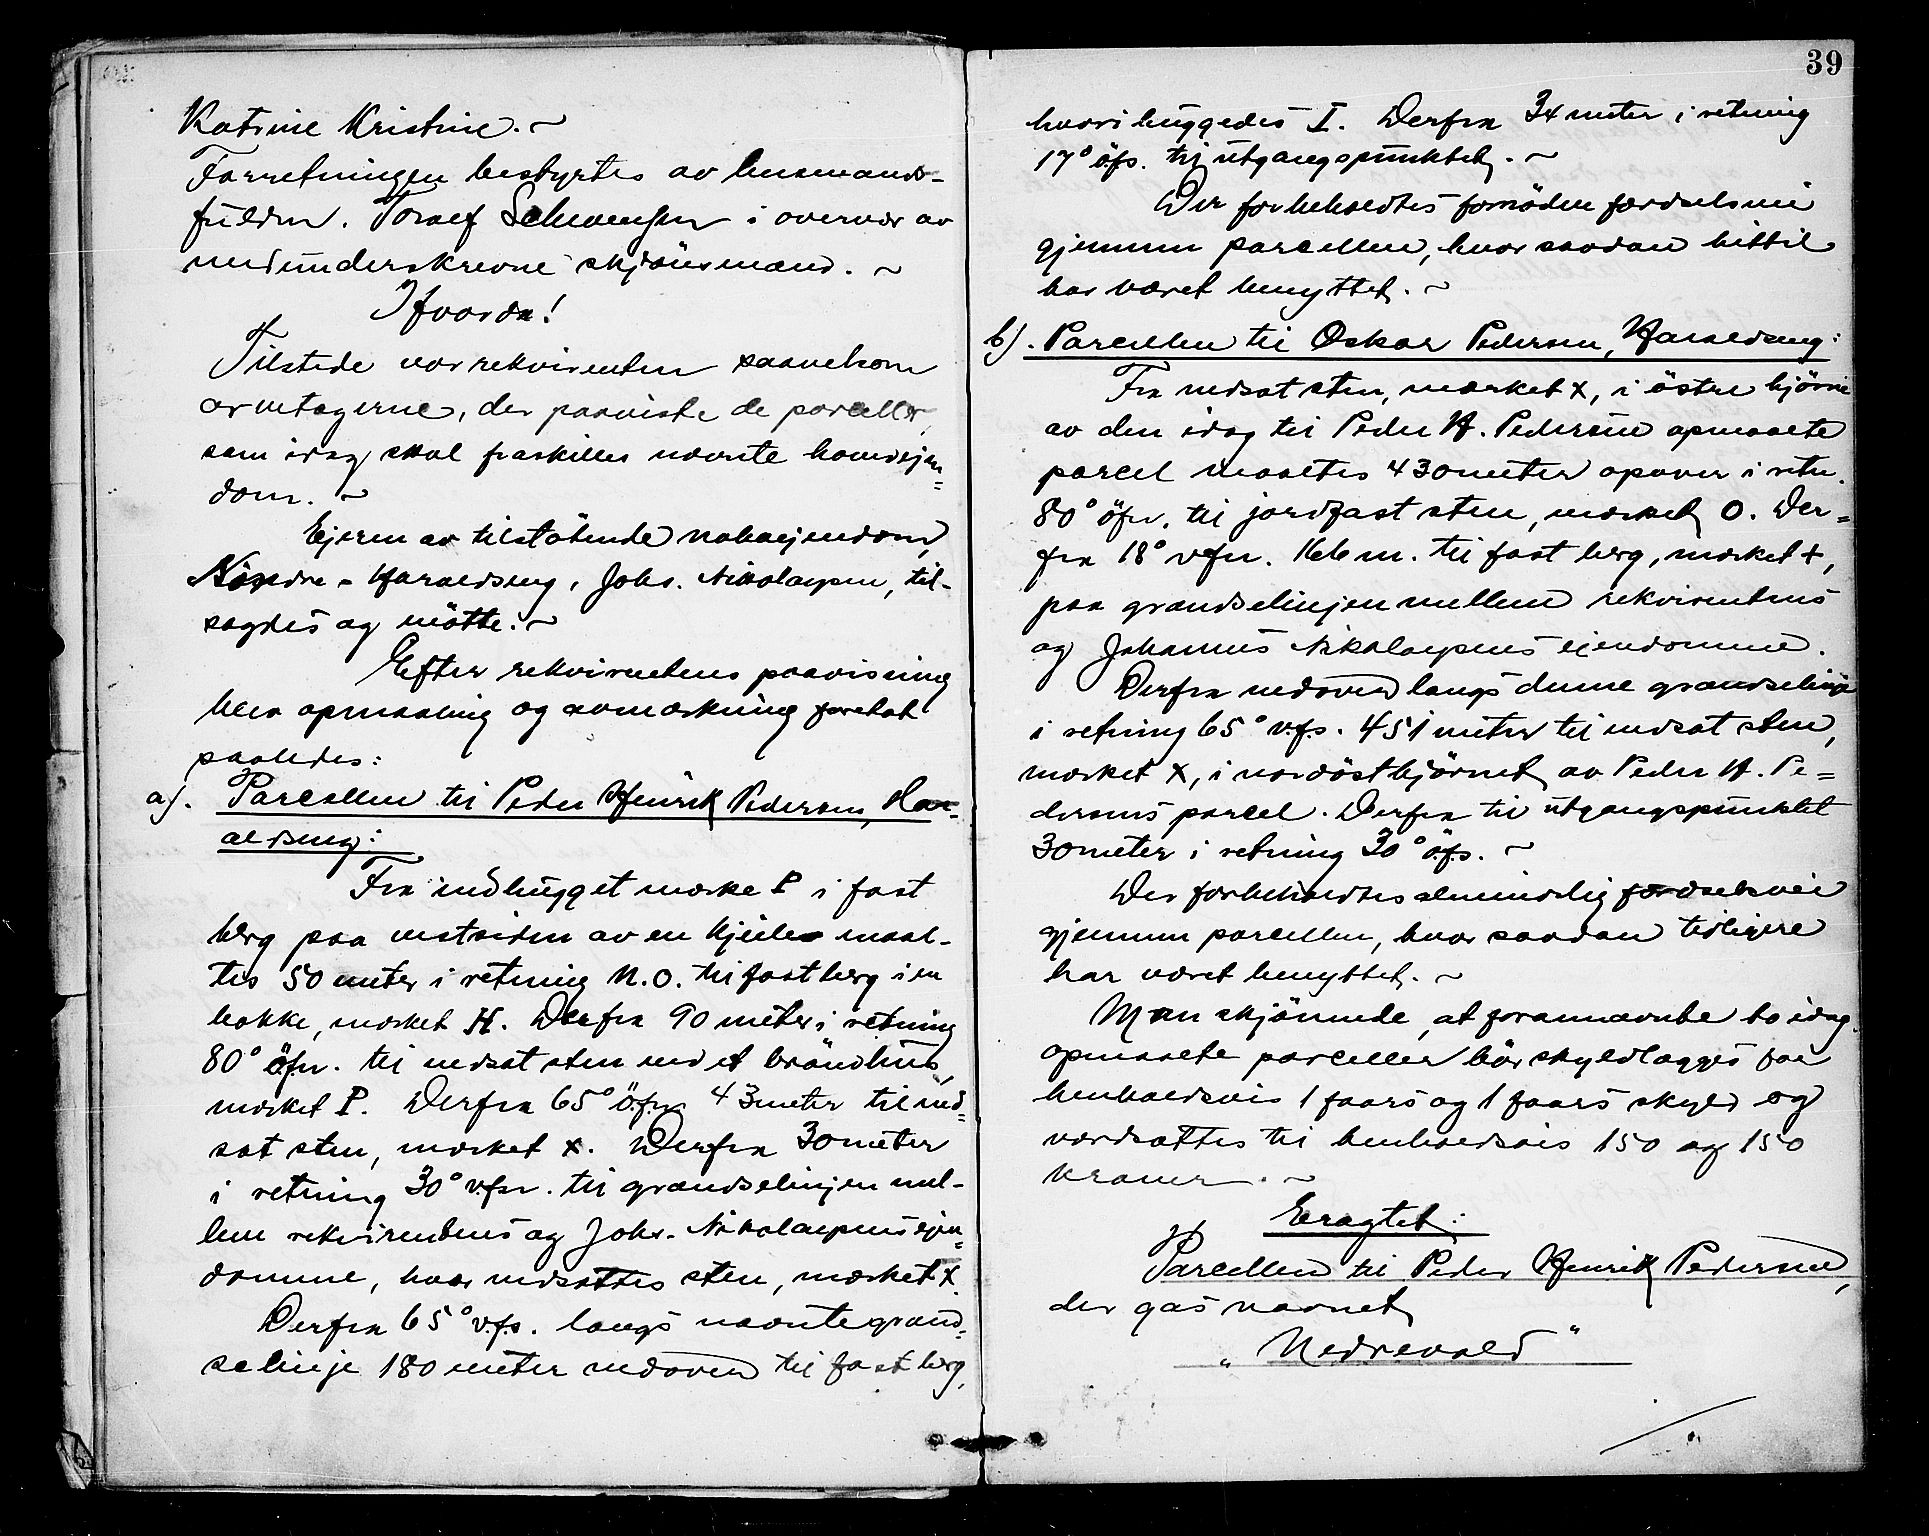 Katrine Kristine. ~
Forretningen bestyrtes av lensmands-
fuldm. Toralf Schwensen i overvær av
medunderskrevne skjönsmænd. ~
Hvorda!
Tilstede var rekvirenten saavelsom
avtagerne, der paaviste de parceller,
som idag skal fraskilles nævnte hovedejen=
dom. ~
Ejeren av tilstötende naboejendom,
Nordre - Haraldseng, Johs. Nikolaysen, til-
sagdes og mötte. ~
Efter rekvirentens paavisning
blev opmaaling og avmerkning foretat
saaledes:
a). Parcellen til Peder Henrik Pedersen, Har-
aldseng:
Fra indhugget merke P i fast
berg paa vestsiden av en kjile maal-
tes 50 meter i retning N.O. til fast berg i en
bakke, merket H. Derfra 90 meter i retning
80° öfn. til nedsat sten ved et bröndhus,
merket P. Derfra 65° öfn 43 meter til ned=
sat sten, merket x. Derfra 30 meter
i retning 30° vfn. til grændselinjen mel-
lem rekvirentens og Johs. Nikolaysens ejen=
domme, hvor nedsattes sten, merket x.
Derfra 65° v.f.s. langs nævnte grænd=
selinje 180 meter nedover til fast berg,
39
hvori huggedes I. Derfra 34 meter i retning
17° öfs. til utgangspunktet. ~
Der forbeholdtes fornöden færdselsvei
gjennem parcellen, hvor saadan hittil
har været benyttet. ~
b). Parcellen til Oskar Pedersen, Haraldseng:
Fra nedsat sten, merket x, i östre hjörne
av den idag til Peder H. Pedersen opmaalte
parcel maaltes 430 meter opover i retn.
80° öfn. til jordfast sten, merket O. Der=
fra 18° vfn. 166 m. til fast berg, merket +,
paa grændselinjen mellem rekvirentens
og Johannes Nikolaysens ejendomme.
Derfra nedover langs denne grændselinje
i retning 65° v.f.s. 451 meter til nedsat sten,
merket x, i nordösthjörnet av Peder H. Pe=
dersens parcel. Derfra til utgangspunktet
30 meter i retning 30° ö.f.s. ~
Der forbeholdtes almindelig færdselsvei
gjennem parcellen, hvor saadan tidligere
har været benyttet. ~
Man skjönnede, at forannævnte to idag
opmaalte parceller bör skyldlægges for
henholdsvis 1 faars og 1 faars skyld og
værdsattes til henholdsvis 150 og 150
kroner. ~
Eragtet:
Parcellen til Peder Henrik Pedersen,
der gas navnet
"Nedrevold"